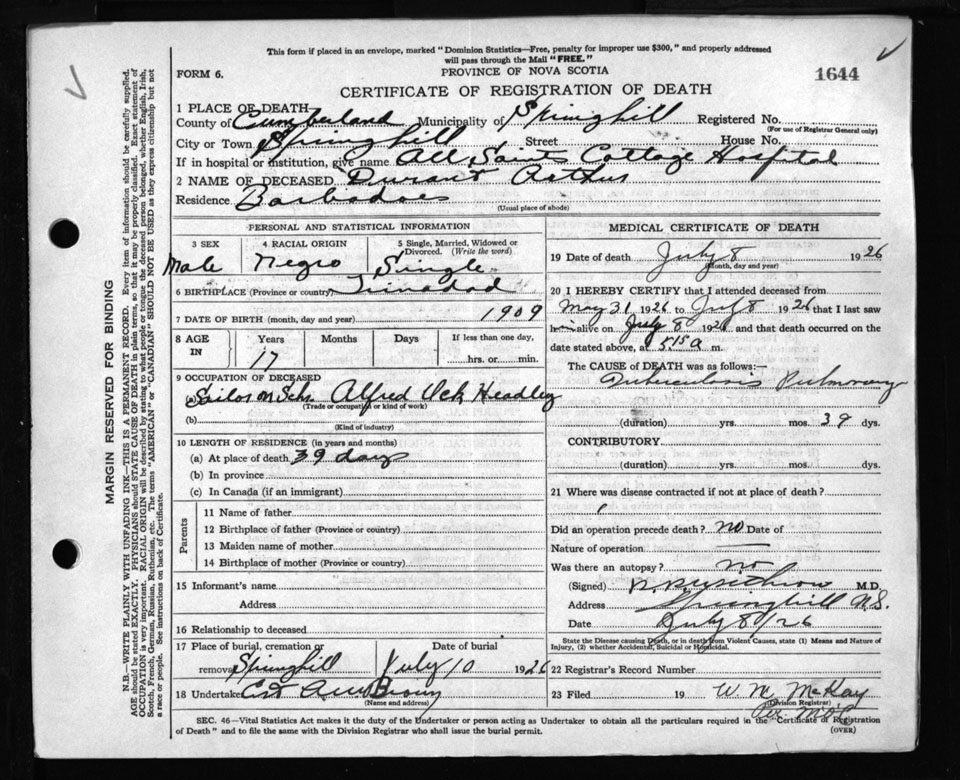 This form if placed in an envelope, marked "Dominion Statistics—Free, penalty for improper use $300," and properly addressed
will pass through the Mail "FREE."
FORM 6.
PROVINCE OF NOVA SCOTIA
1644
CERTIFICATE OF REGISTRATION OF DEATH
1 PLACE OF DEATH
County of Cumberland Municipality of Springhill Registered No.
(For use of Registrar General only)
City or Town Springhill Street House No.
If in hospital or institution, give name All Saints Cottage Hospital
2 NAME OF DECEASED Durant Arthur
Residence Barbadoes
(Usual place of abode)
PERSONAL AND STATISTICAL INFORMATION
3 SEX 4 RACIAL ORIGIN 5 Single, Married, Widowed or Divorced. (Write the word)
Male Negro Single
6 BIRTHPLACE (Province or country) Trinadad
7 DATE OF BIRTH (month, day and year) 1909
8 AGE IN Years Months Days If less than one day,
17 hrs. or min.
9 OCCUPATION OF DECEASED
(a) Sailor on Schr. Alfred Ock Headley
(Trade or occupation or kind of work)
(b)
(Kind of industry)
10 LENGTH OF RESIDENCE (in years and months)
(a) At place of death 39 days
(b) In province
(c) In Canada (if an immigrant)
Parents
11 Name of father
12 Birthplace of father (Province or country)
13 Maiden name of mother
14 Birthplace of mother (Province or country)
15 Informant's name
Address
16 Relationship to deceased
17 Place of burial, cremation or Date of burial
removal Springhill July 10 1926
18 Undertaker Brown
(Name and address)
MEDICAL CERTIFICATE OF DEATH
19 Date of death July 8 1926
(Month, day and year)
20 I HEREBY CERTIFY that I attended deceased from
May 31 1926 to July 8 1926 that I last saw
him alive on July 8 1926 and that death occurred on
date stated above, at 5.15 a m.
The CAUSE of DEATH was as follows:—
Tuberculosis Pulmonary
(duration) yrs. mos. 39 dys.
CONTRIBUTORY
(duration) yrs. mos. dys.
21 Where was disease contracted if not at place of death?
Did an operation precede death? no Date of
Nature of operation
Was there an autopsy? no
(Signed) M.D.
Address Springhill N.S.
Date July 8/26
State the Disease causing Death, or in death from Violent Causes, state (1) Means and Nature of
Injury, (2) whether Accidental, Suicidal or Homicidal.
22 Registrar's Record Number
23 Filed 19 W. M. McKay
(Division Registrar)
SEC. 46—Vital Statistics Act makes it the duty of the Undertaker or person acting as Undertaker to obtain all the particulars required in the "Certificate of Registration
of Death" and to file the same with the Division Registrar who shall issue the burial permit.
(OVER)
MARGIN RESERVED FOR BINDING
N.B.—WRITE PLAINLY WITH UNFADING INK—THIS IS A PERMANENT RECORD. Every item of information should be carefully supplied.
AGE should be stated EXACTLY. PHYSICIANS should STATE CAUSE OF DEATH in plain terms, so that it may be properly classified. Exact statement of
OCCUPATION is very important. RACIAL ORIGIN will be described by stating to what people or tongue the deceased person belonged, whether English, Irish,
Scotch, French, German, Russian, Ruthenian, etc. The terms "AMERICAN" or "CANADIAN" SHOULD NOT BE USED as they express citizenship but not
a race or people. See instructions on back of Certificate.